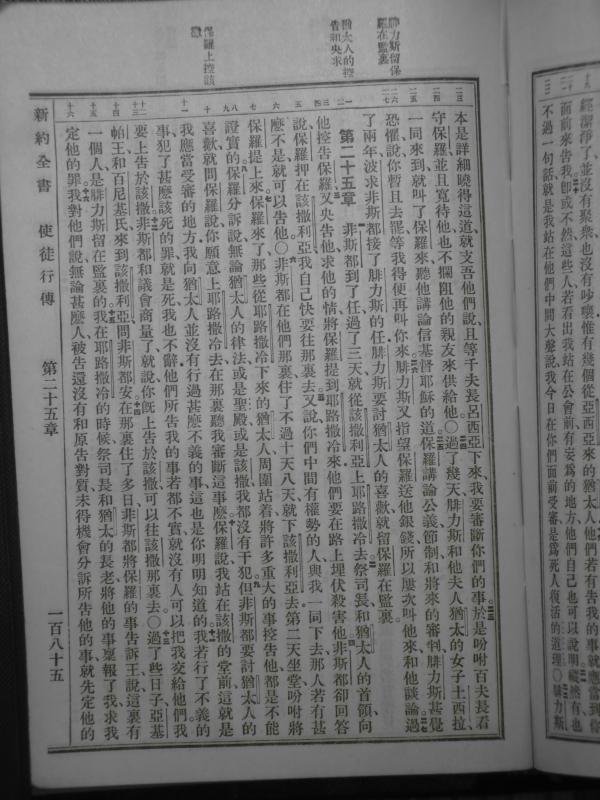 經潔淨了、並沒有聚衆、也沒有吵嚷、惟有幾個從亞西亞來的猶太人、他們若有告我的事、就應當到你
面前來告我、卽或不然、這些人若看出我站在公會前、有妄爲的地方、他們自己也可以說明、縱然有、也
不過一句話、就是我站在他們中間大聲說、我今日在你們面前受審、是爲死人復活的道理○腓力斯
本是詳細曉得這道、就支吾他們說、且等千夫長呂西亞下來、我要審斷你們的事、於是吩咐百夫長看
守保羅、並且寬待他、也不攔阻他的親友來供給他○過了幾天、腓力斯和他夫人猶太的女子土西拉、
一同來到、就叫了保羅來、聽他講論信基督耶穌的道、保羅講論公義、節制、和將來的審判、腓力斯甚覺
恐懼、說、你暫且去罷、等我得便再叫你來、腓力斯又指望保羅送他銀錢、所以屢次叫他來、和他談論、過
了兩年、波求非斯都接了腓力斯的任、腓力斯要討猶太人的喜歡、就留保羅在監裏、
第二十五章 非斯都到了任、過了三天、就從該撒利亞上耶路撒冷去、祭司長、和猶太人的首領、向
他控告保羅、又央告他、求他的情、將保羅提到耶路撒冷來、他們要在路上埋伏殺害他、非斯都卻回答
說、保羅押在該撒利亞、我自己快要往那裏去、又說、你們中間有權勢的人、與我一同下去、那人若有甚
麽不是、就可以告他○非斯都在他們那裏、住了不過十天八天、就下該撒利亞去、第二天坐堂、吩咐將
保羅提上來、保羅來了、那些從耶路撒冷下來的猶太人、周圍站着、將許多重大的事控告他、都是不能
證實的、保羅分訴說、無論猶太人的律法、或是聖殿、或是該撒、我都沒有干犯、但非斯都要討猶太人的
喜歡、就問保羅說、你願意上耶路撒冷去、在那裏聽我審斷這事麽、保羅說、我站在該撒的堂前、這就是
我應當受審的地方、我向猶太人並沒有行過甚麽不義的事、這也是你明明知道的、我若行了不義的
事、犯了甚麽該死的罪、就是死、我也不辭、他們所告我的事若都不實、就沒有人可以把我交給他們、我
要上告於該撒、非斯都和議會商量了、就說、你旣上告於該撒、可以往該撒那裏去○過了些日子、亞基
帕王和百尼基氏來到該撒利亞、問非斯都安、在那裏住了多日、非斯都將保羅的事告訴王、說、這裏有
一個人、是腓力斯留在監裏的、我在耶路撒冷的時候、祭司長和猶太的長老、將他的事稟報了我、求我
定他的罪、我對他們說、無論甚麽人、被告還沒有和原告對質、未得機會分訴所告他的事、就先定他的
腓力斯留保
羅在監裏
猶太人的控
告和央求
保羅上控該
撒
新約全書 使徒行傳 第二十五章 一百八十五